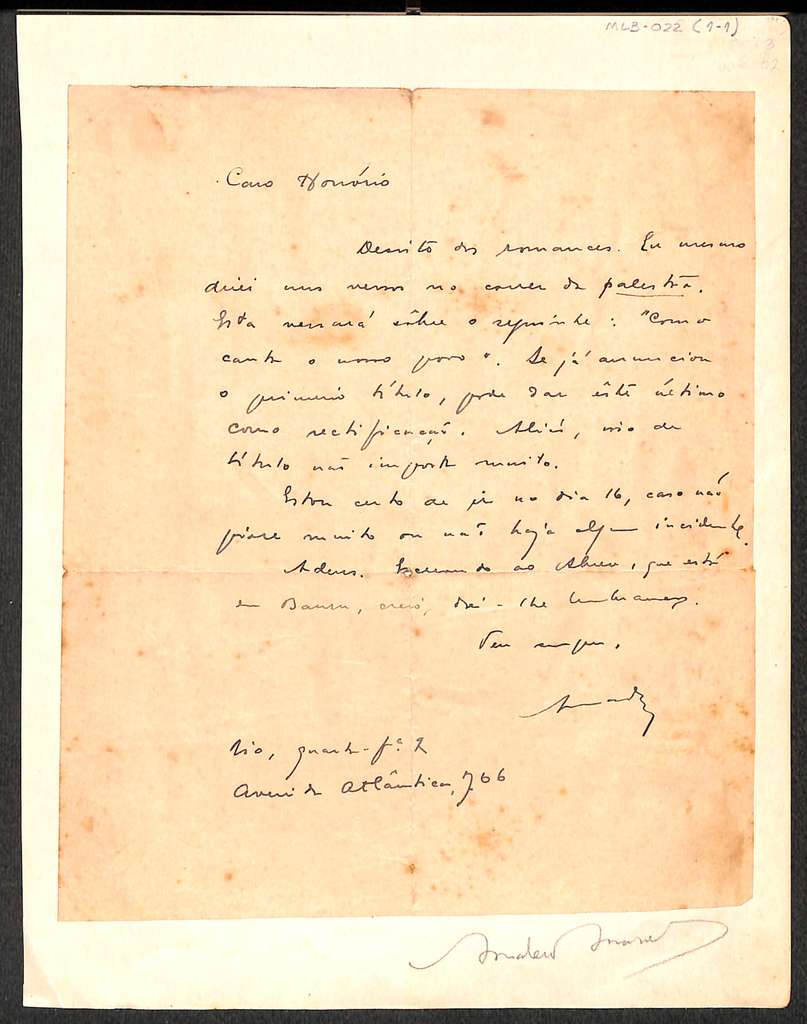 MLB-022 (1-1)
Caro Honório
Desisto dos romances. Eu mesmo
direi uns versos no correr da palestra.
Esta versará sôbre o seguinte: "Como
canta o nosso povo". Se já anunciou
o primeiro título, pode dar êste último
como rectificação. Aliás, isso de
título não importa muito.
Estou certo de ir no dia 16, caso não
piore muito ou não haja algum incidente.
Adeus. Escrevendo ao Abreu, que está
em Bauru, creio, dê-lhe lembranças.
Teu sempre,
Amadeu
Rio, quarta-fª 2
Avenida Atlântica, 766
Amadeu Amaral